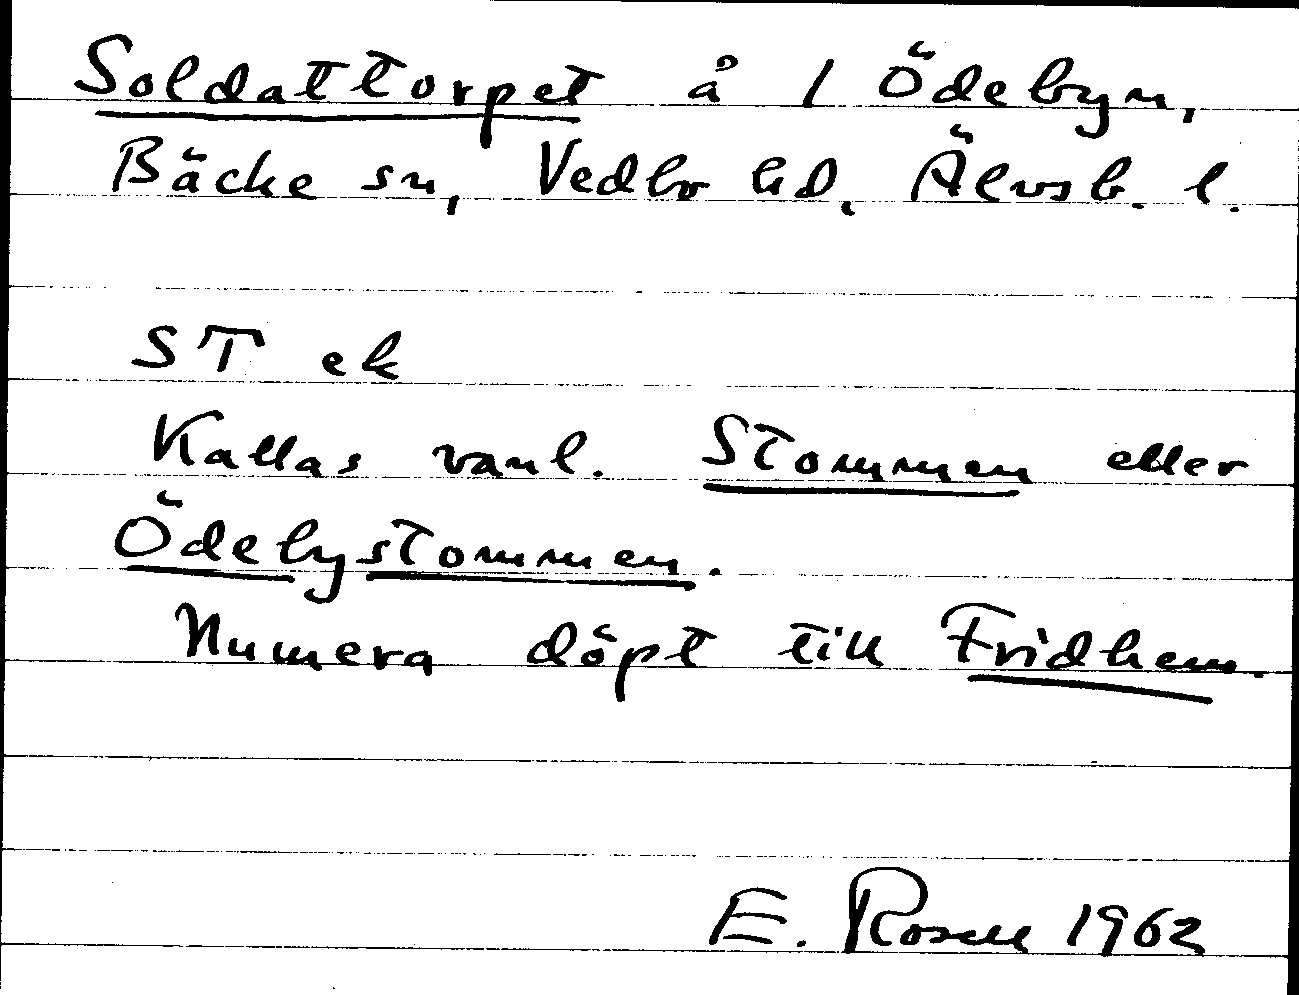 Soldattorpet å 1 Ödebyn,
Bäcke sn, Vedbo hd, Älvsb. l.
ST ek
Kallas vanl. Stommen eller
Ödebystommen.
Numera döpt till Fridhem.
E. Rosell 1962